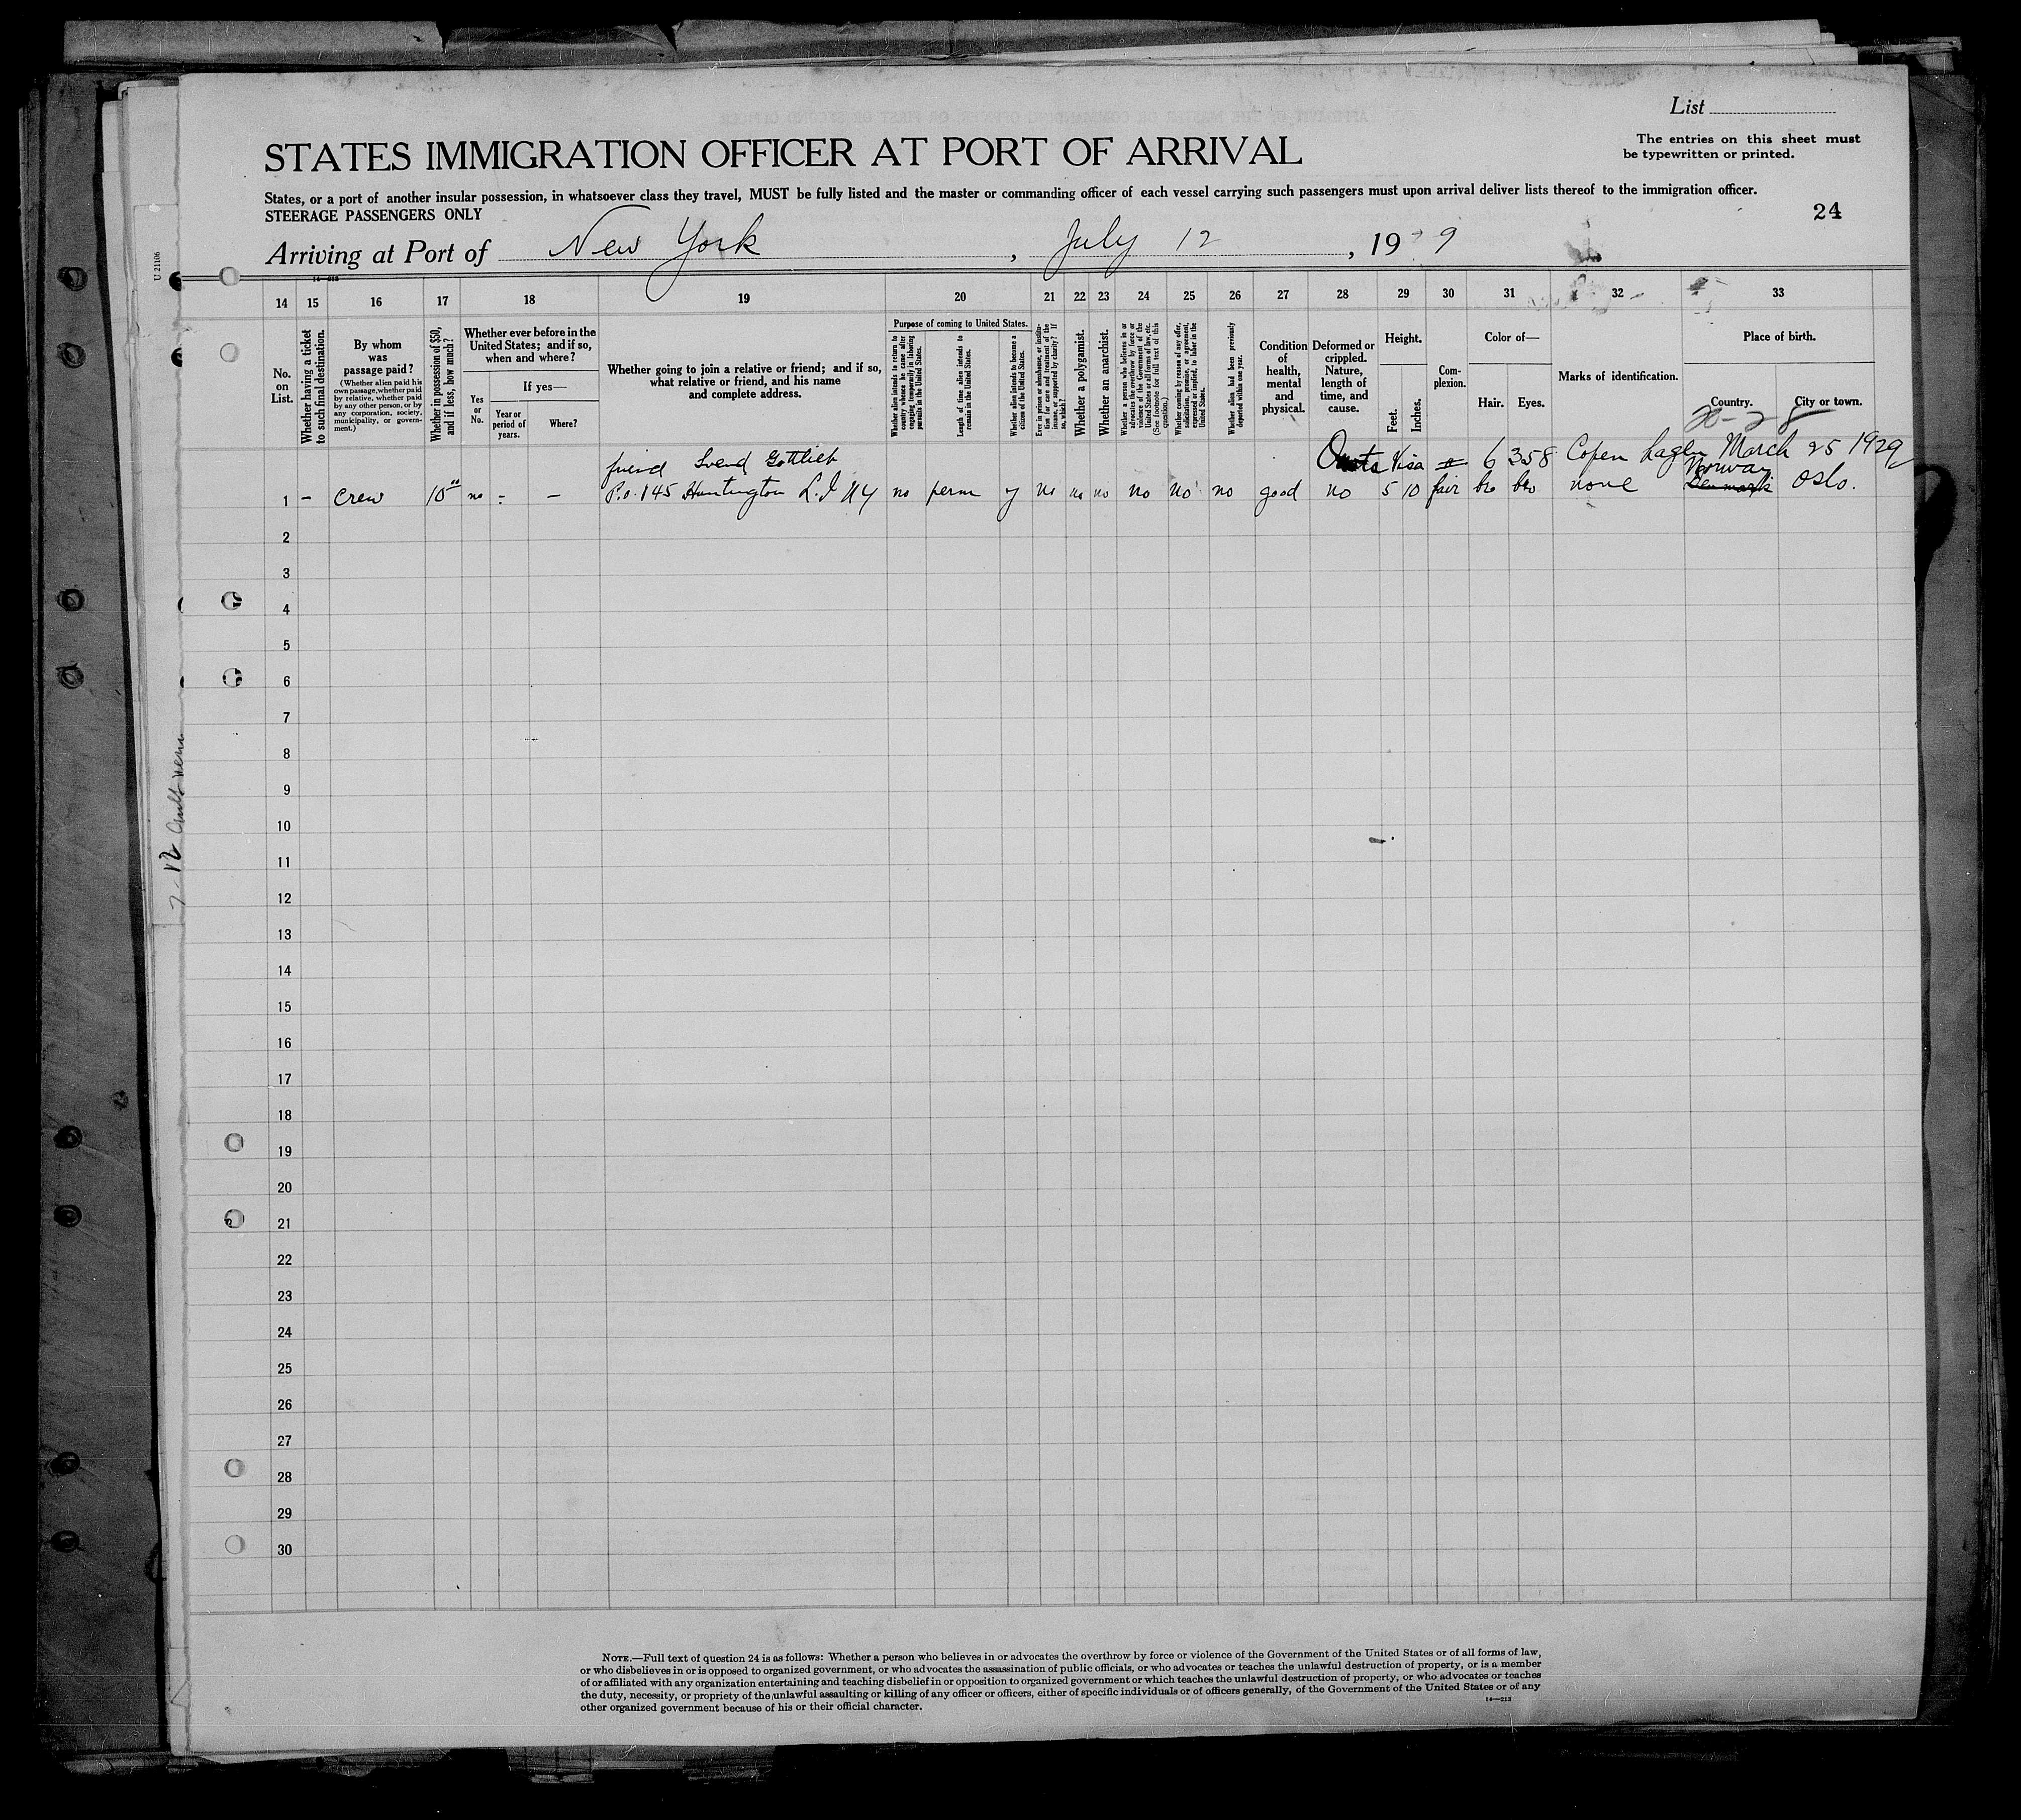 List
The entries on this sheet must
be typewritten or printed.
STATES IMMIGRATION OFFICER AT PORT OF ARRIVAL
States, or a port of another insular possession, in whatsoever class they travel, MUST be fully listed and the master or commanding officer of each vessel carrying such passengers must upon arrival deliver lists thereof to the immigration officer.
STEERAGE PASSENGERS ONLY
24
Arriving at Port of New York, July 12, 1929
U 21106
14 15 16 17 18 19 20 21 22 23 24 25 26 27 28 29 30 31 32 33
No. on List.
Whether having a ticket to such final destination.
By whom was passage paid?
(Whether alien paid his own passage, whether paid by relative, whether paid by any other person, or by any corporation, society, municipality, or government.)
Whether in possession of $50, and if less, how much?
Whether ever before in the United States; and if so, when and where?
Yes or No.
If yes—
Year or period of years.
Where?
Whether going to join a relative or friend; and if so, what relative or friend, and his name and complete address.
Purpose of coming to United States.
Whether alien intends to return to country whence he came after engaging temporarily in laboring pursuits in the United States.
Length of time alien intends to remain in the United States.
Whether alien intends to become a citizen of the United States.
Ever in prison or almshouse, or institution for care and treatment of the insane, or supported by charity? If so, which?
Whether a polygamist.
Whether an anarchist.
Whether a person who believes in or advocates the overthrow by force or violence of the Government of the United States or all forms of law, etc. (See footnote for full text of this question.)
Whether coming by reason of any offer, solicitation, promise, or agreement, expressed or implied, to labor in the United States.
Whether alien had been previously deported within one year.
Condition of health, mental and physical.
Deformed or crippled. Nature, length of time, and cause.
Height.
Feet.
Inches.
Complexion.
Color of—
Hair.
Eyes.
Marks of identification.
Place of birth.
Country.
City or town.
20-28
friend Svend Gottlieb
Quota Visa # 6358 Copenhagen March 25 1929
Norway
1 – crew 10.00 no – – P.O. 145 Huntington L.I NY no perm y no no no no no no good no 5 10 fair bro bro none Denmark Oslo.
2
3
4
5
6
7
8
9
10
11
12
13
14
15
16
17
18
19
20
21
22
23
24
25
26
27
28
29
30
NOTE.—Full text of question 24 is as follows: Whether a person who believes in or advocates the overthrow by force or violence of the Government of the United States or of all forms of law,
or who disbelieves in or is opposed to organized government, or who advocates the assassination of public officials, or who advocates or teaches the unlawful destruction of property, or is a member
of or affiliated with any organization entertaining and teaching disbelief in or opposition to organized government or which teaches the unlawful destruction of property, or who advocates or teaches
the duty, necessity, or propriety of the unlawful assaulting or killing of any officer or officers, either of specific individuals or of officers generally, of the Government of the United States or of any
other organized government because of his or their official character.
14—213